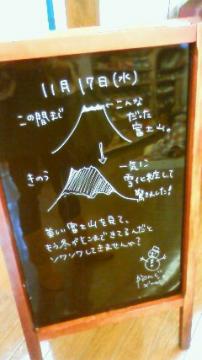 11月17日(水)
この間まで
←こんな
だった
富士山。
↓
きのう
一気に
雪化粧して
ました!
美しい富士山を見て、
もう冬がそこまできてるんだと
ソワソワしてきませんか?